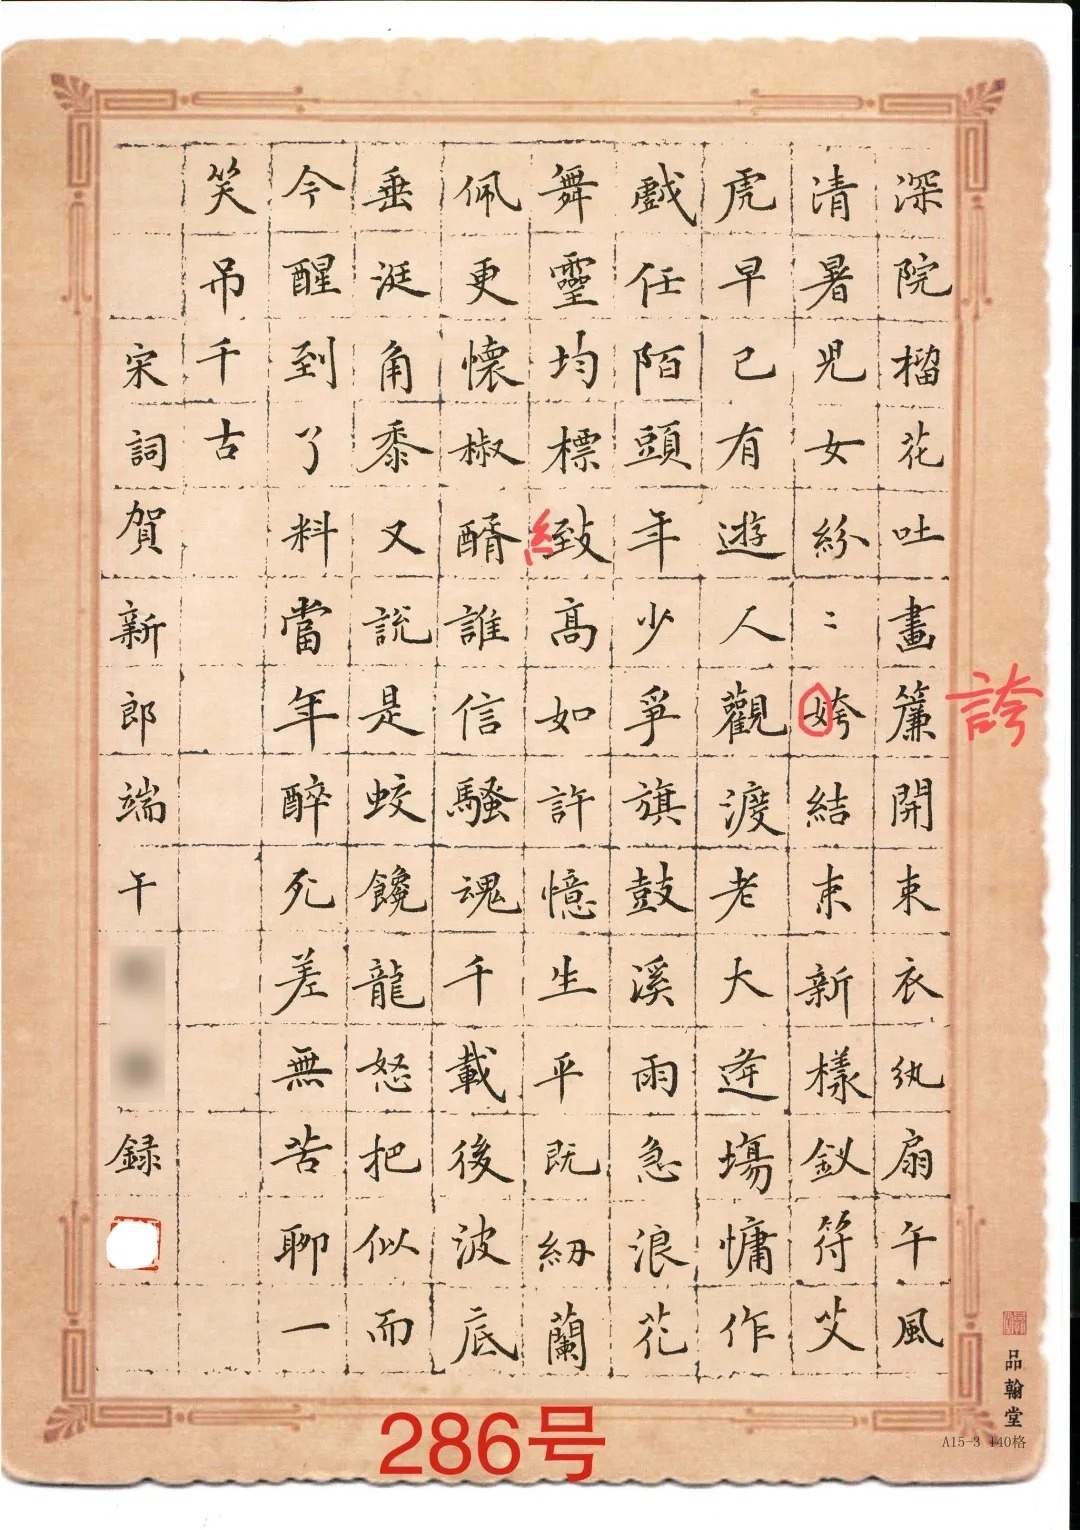 深院榴花吐畫簾開束衣紈扇午風
清暑兒女紛〻姱結束新樣釵符艾
虎早已有遊人觀渡老大逢塲慵作
戲任陌頭年少爭旗鼓溪雨急浪花
舞靈均標致高如許憶生平既紉蘭
佩更懷椒醑誰信騷魂千載後波底
垂涎角黍又説是蛟饞龍怒把似而
今醒到了料當年醉死差無苦聊一
笑吊千古
宋詞賀新郎端午
録
誇
糹
286号
品翰堂
A15-3 140格